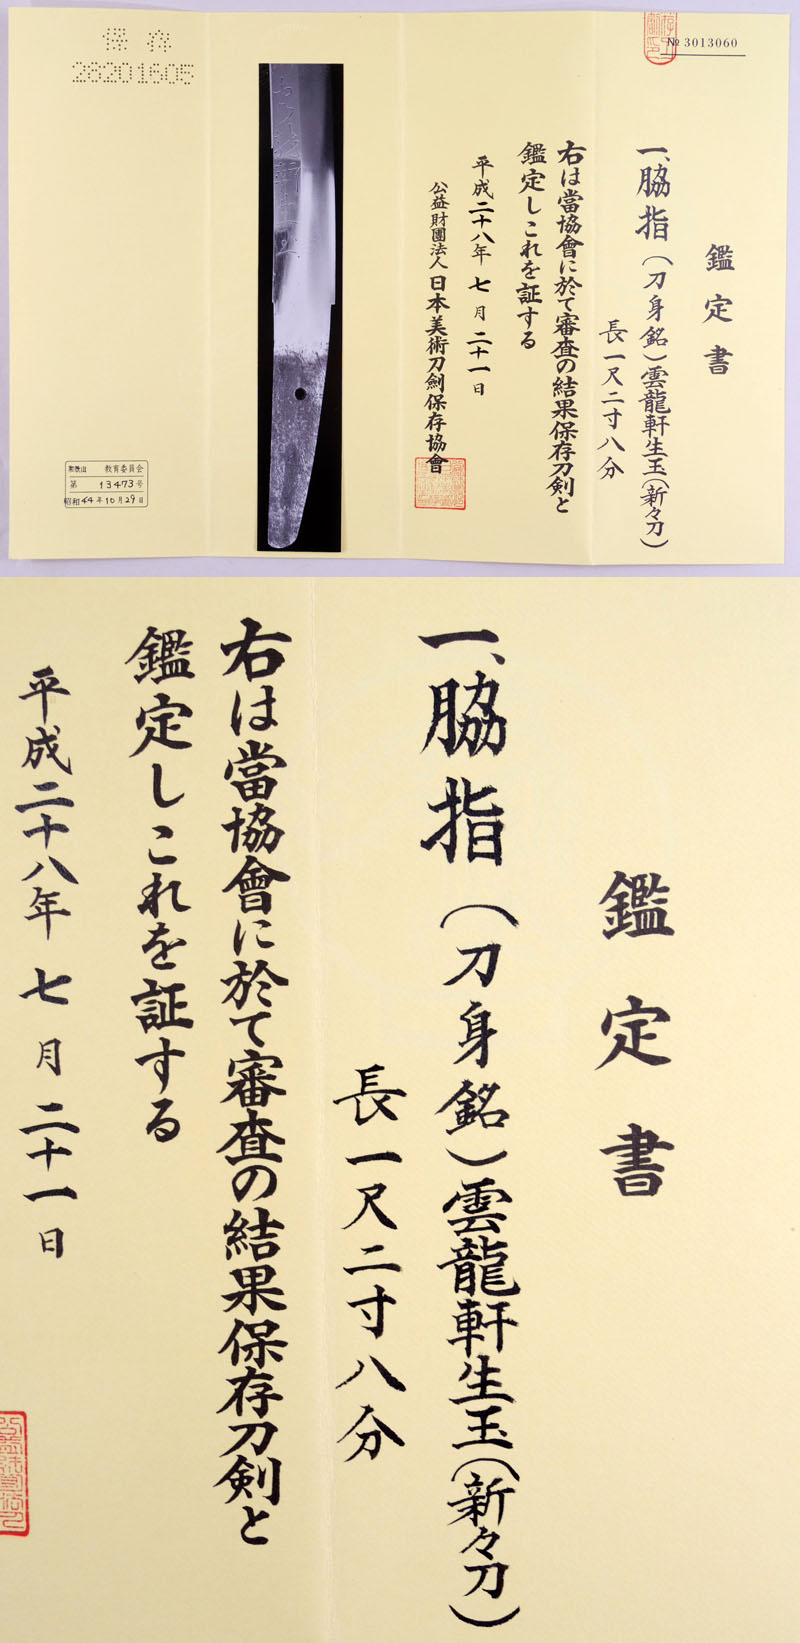 № 3013060
鑑定書
一、脇指（刀身銘）雲龍軒生玉（新々刀）
長一尺二寸八分
右は當協會に於て審査の結果保存刀剣と
鑑定しこれを証する
平成二十八年 七月 二十一日
公益財團法人 日本美術刀劍保存協會
保存
28201605
和歌山 教育委員会
第 13473号
昭和44年10月29日
鑑定書
一、脇指（刀身銘）雲龍軒生玉（新々刀）
長一尺二寸八分
右は當協會に於て審査の結果保存刀剣と
鑑定しこれを証する
平成二十八年 七月 二十一日